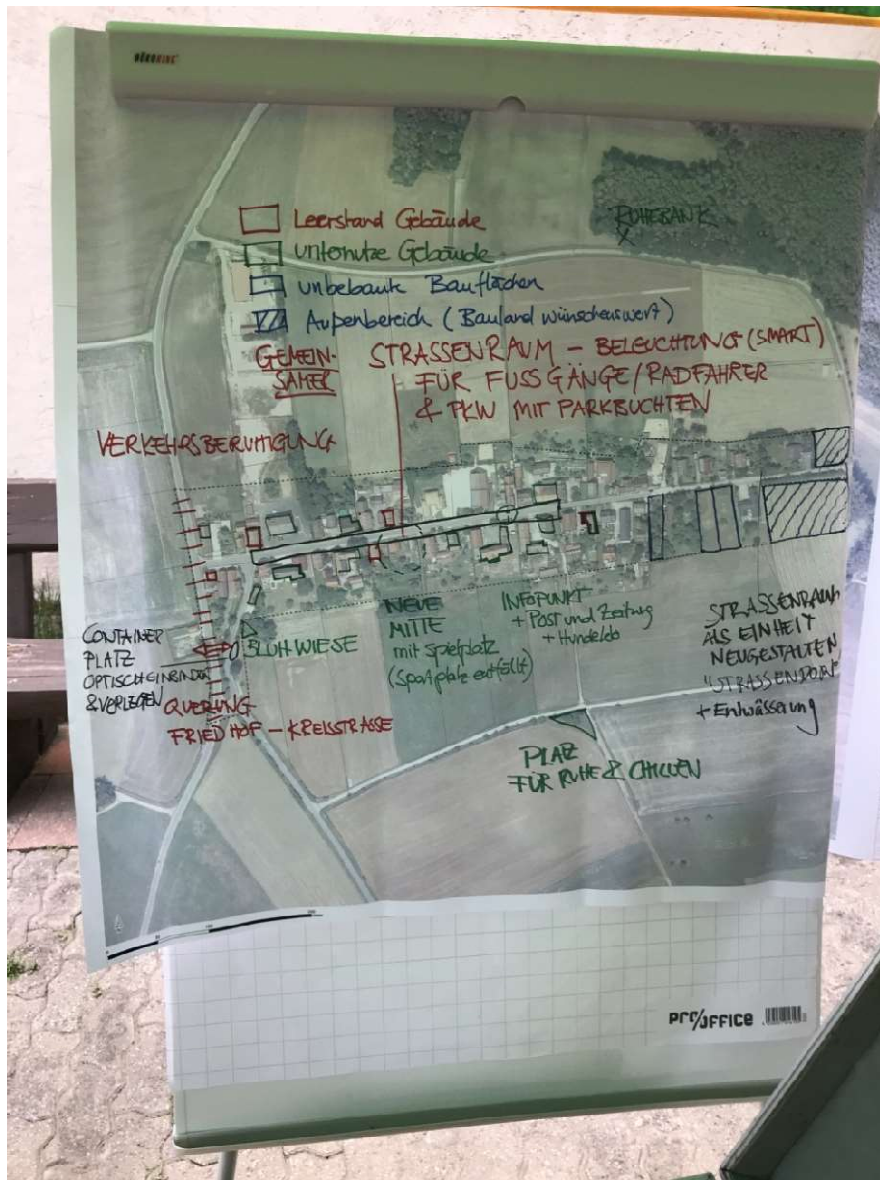 BÜROKING
Leerstand Gebäude
RUHEBANK
X
untenutze Gebäude
unbebaute Bauflächen
Außenbereich (Bauland wünschenswert)
GEMEIN-
SAMER
STRASSENRAUM – BELEUCHTUNG (SMART)
FÜR FUSSGÄNGE/RADFAHRER
& PKW MIT PARKBUCHTEN
VERKEHRSBERUHIGUNG
CONTAINER
PLATZ
OPTISCH EINBINDEN
& VERLEGEN
BLÜHWIESE
QUERUNG
FRIEDHOF – KREISSTRASSE
NEUE
MITTE
mit Spielplatz
(Sportplatz entfällt)
INFOPUNKT
+ Post und Zeitung
+ Hundeklo
STRASSENRAUM
ALS EINHEIT
NEUGESTALTEN
"STRASSENDORF"
+ Entwässerung
PLATZ
FÜR RUHE & CHILLEN
PRO/OFFICE